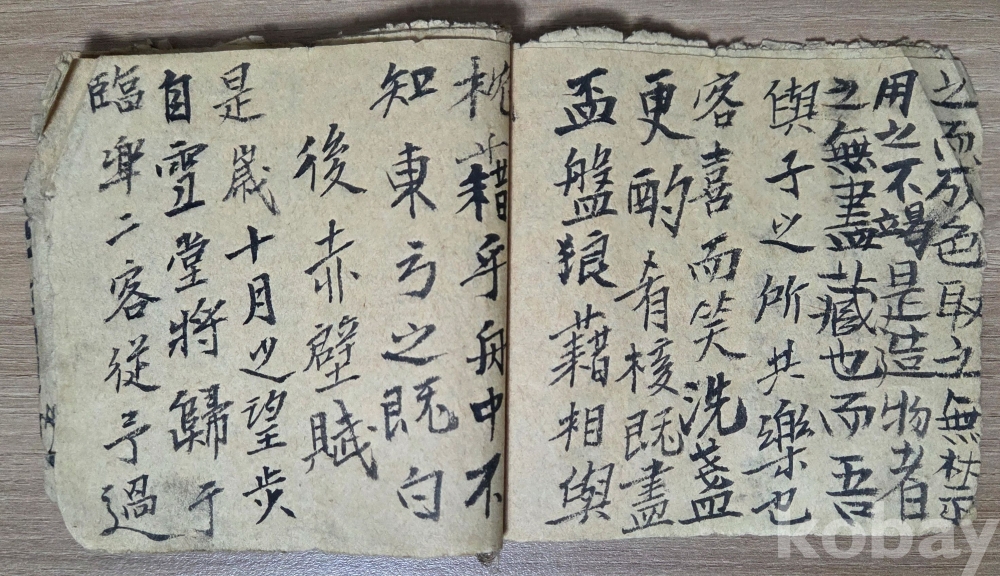 之而成色取之無禁
用之不竭是造物者
之無盡藏也而吾
與子之所共樂也
客喜而笑洗盞
更酌肴核既盡
盃盤狼藉相與
枕藉乎舟中不
知東方之既白
後赤壁賦
是歲十月之望步
自雪堂將歸于
臨皐二客從予過
kobay